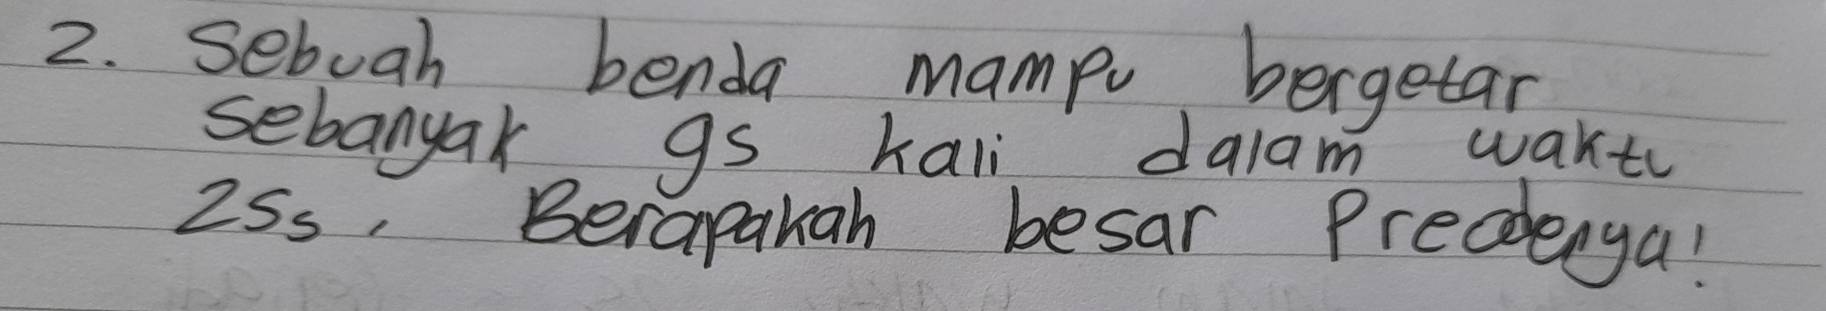 2. Sebuah benda mampu bergetar
sebanyak 95 kali dalam waktu
25s, Berapakah besar Predenya!